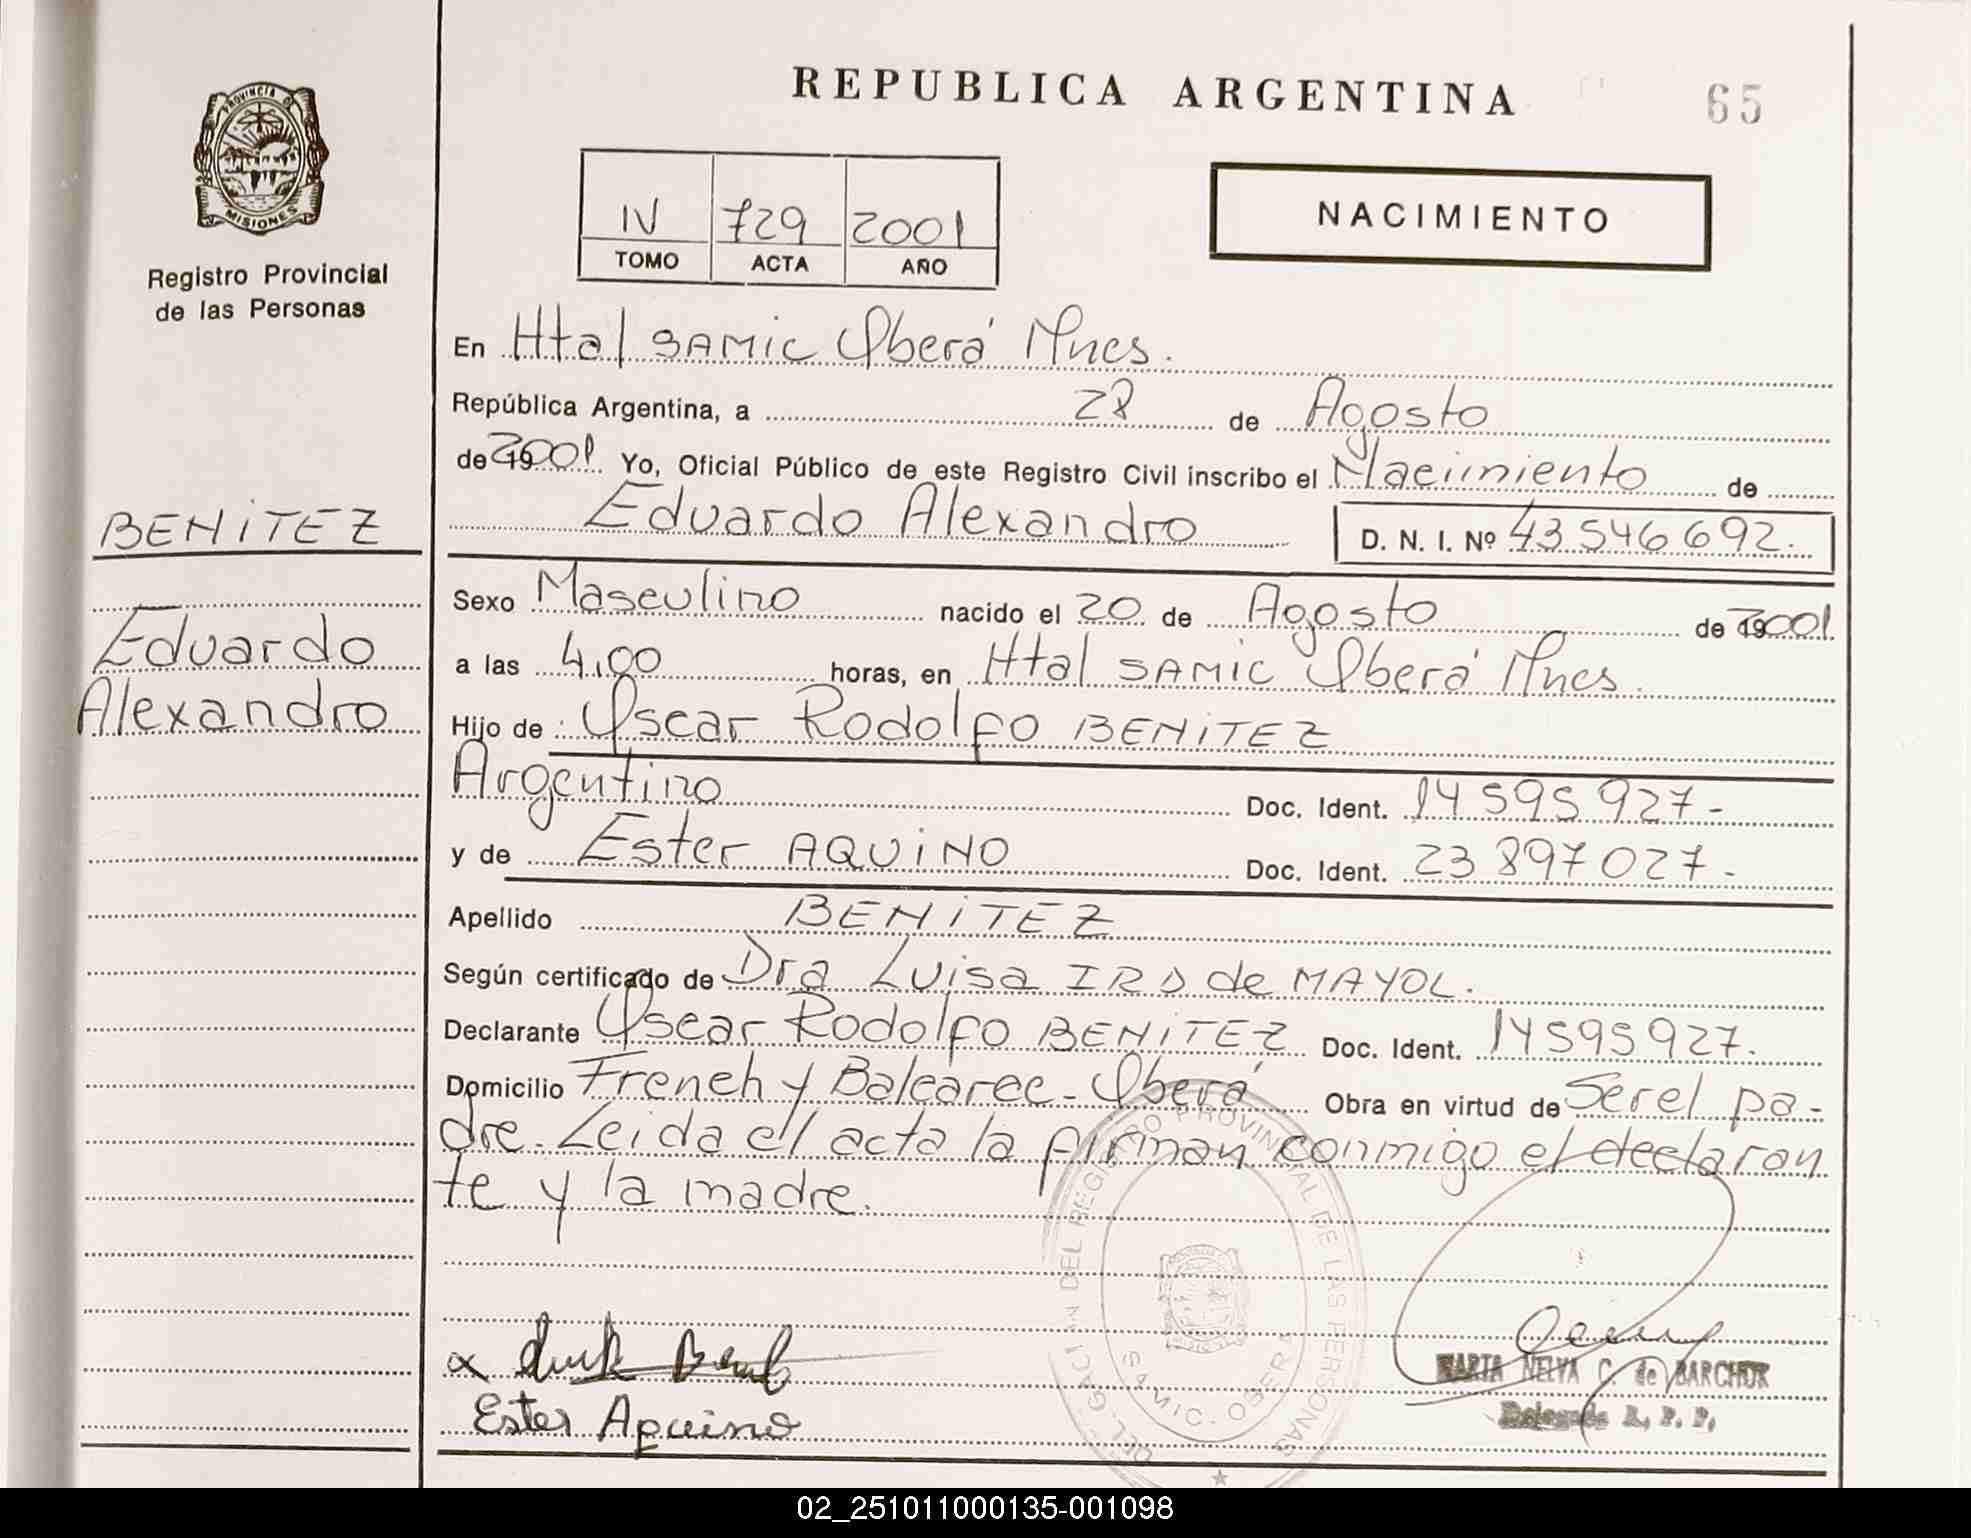 REPUBLICA ARGENTINA
65
PROVINCIA D
MISIONES
Registro Provincial
de las Personas
IV 729 2001
TOMO ACTA AÑO
NACIMIENTO
En Htal SAMIC Oberá Mnes.
República Argentina, a 28 de Agosto
de 2001. Yo, Oficial Público de este Registro Civil inscribo el Nacimiento de
Eduardo Alexandro D. N. I. Nº 43546692.
BENITEZ
Eduardo
Alexandro
Sexo Masculino nacido el 20 de Agosto de 2001.
a las 4,00 horas, en Htal SAMIC Oberá Mnes.
Hijo de Oscar Rodolfo BENITEZ
Argentino Doc. Ident. 14595927-
y de Ester AQUINO Doc. Ident. 23897027-
Apellido BENITEZ
Según certificado de Dra Luisa de MAYOL.
Declarante Oscar Rodolfo BENITEZ Doc. Ident. 14595927.
Domicilio French y Balcarec - Oberá Obra en virtud de Ser el pa-
dre. Leida el acta la firman conmigo el declaran
te y la madre.
DEL REGISTRO PROVINCIAL DE LAS PERSONAS
SAMIC. OBERA
Ester Aquino
MARTA NELVA C. de BARCHUK
Delegada R. P. P.
02_251011000135-001098